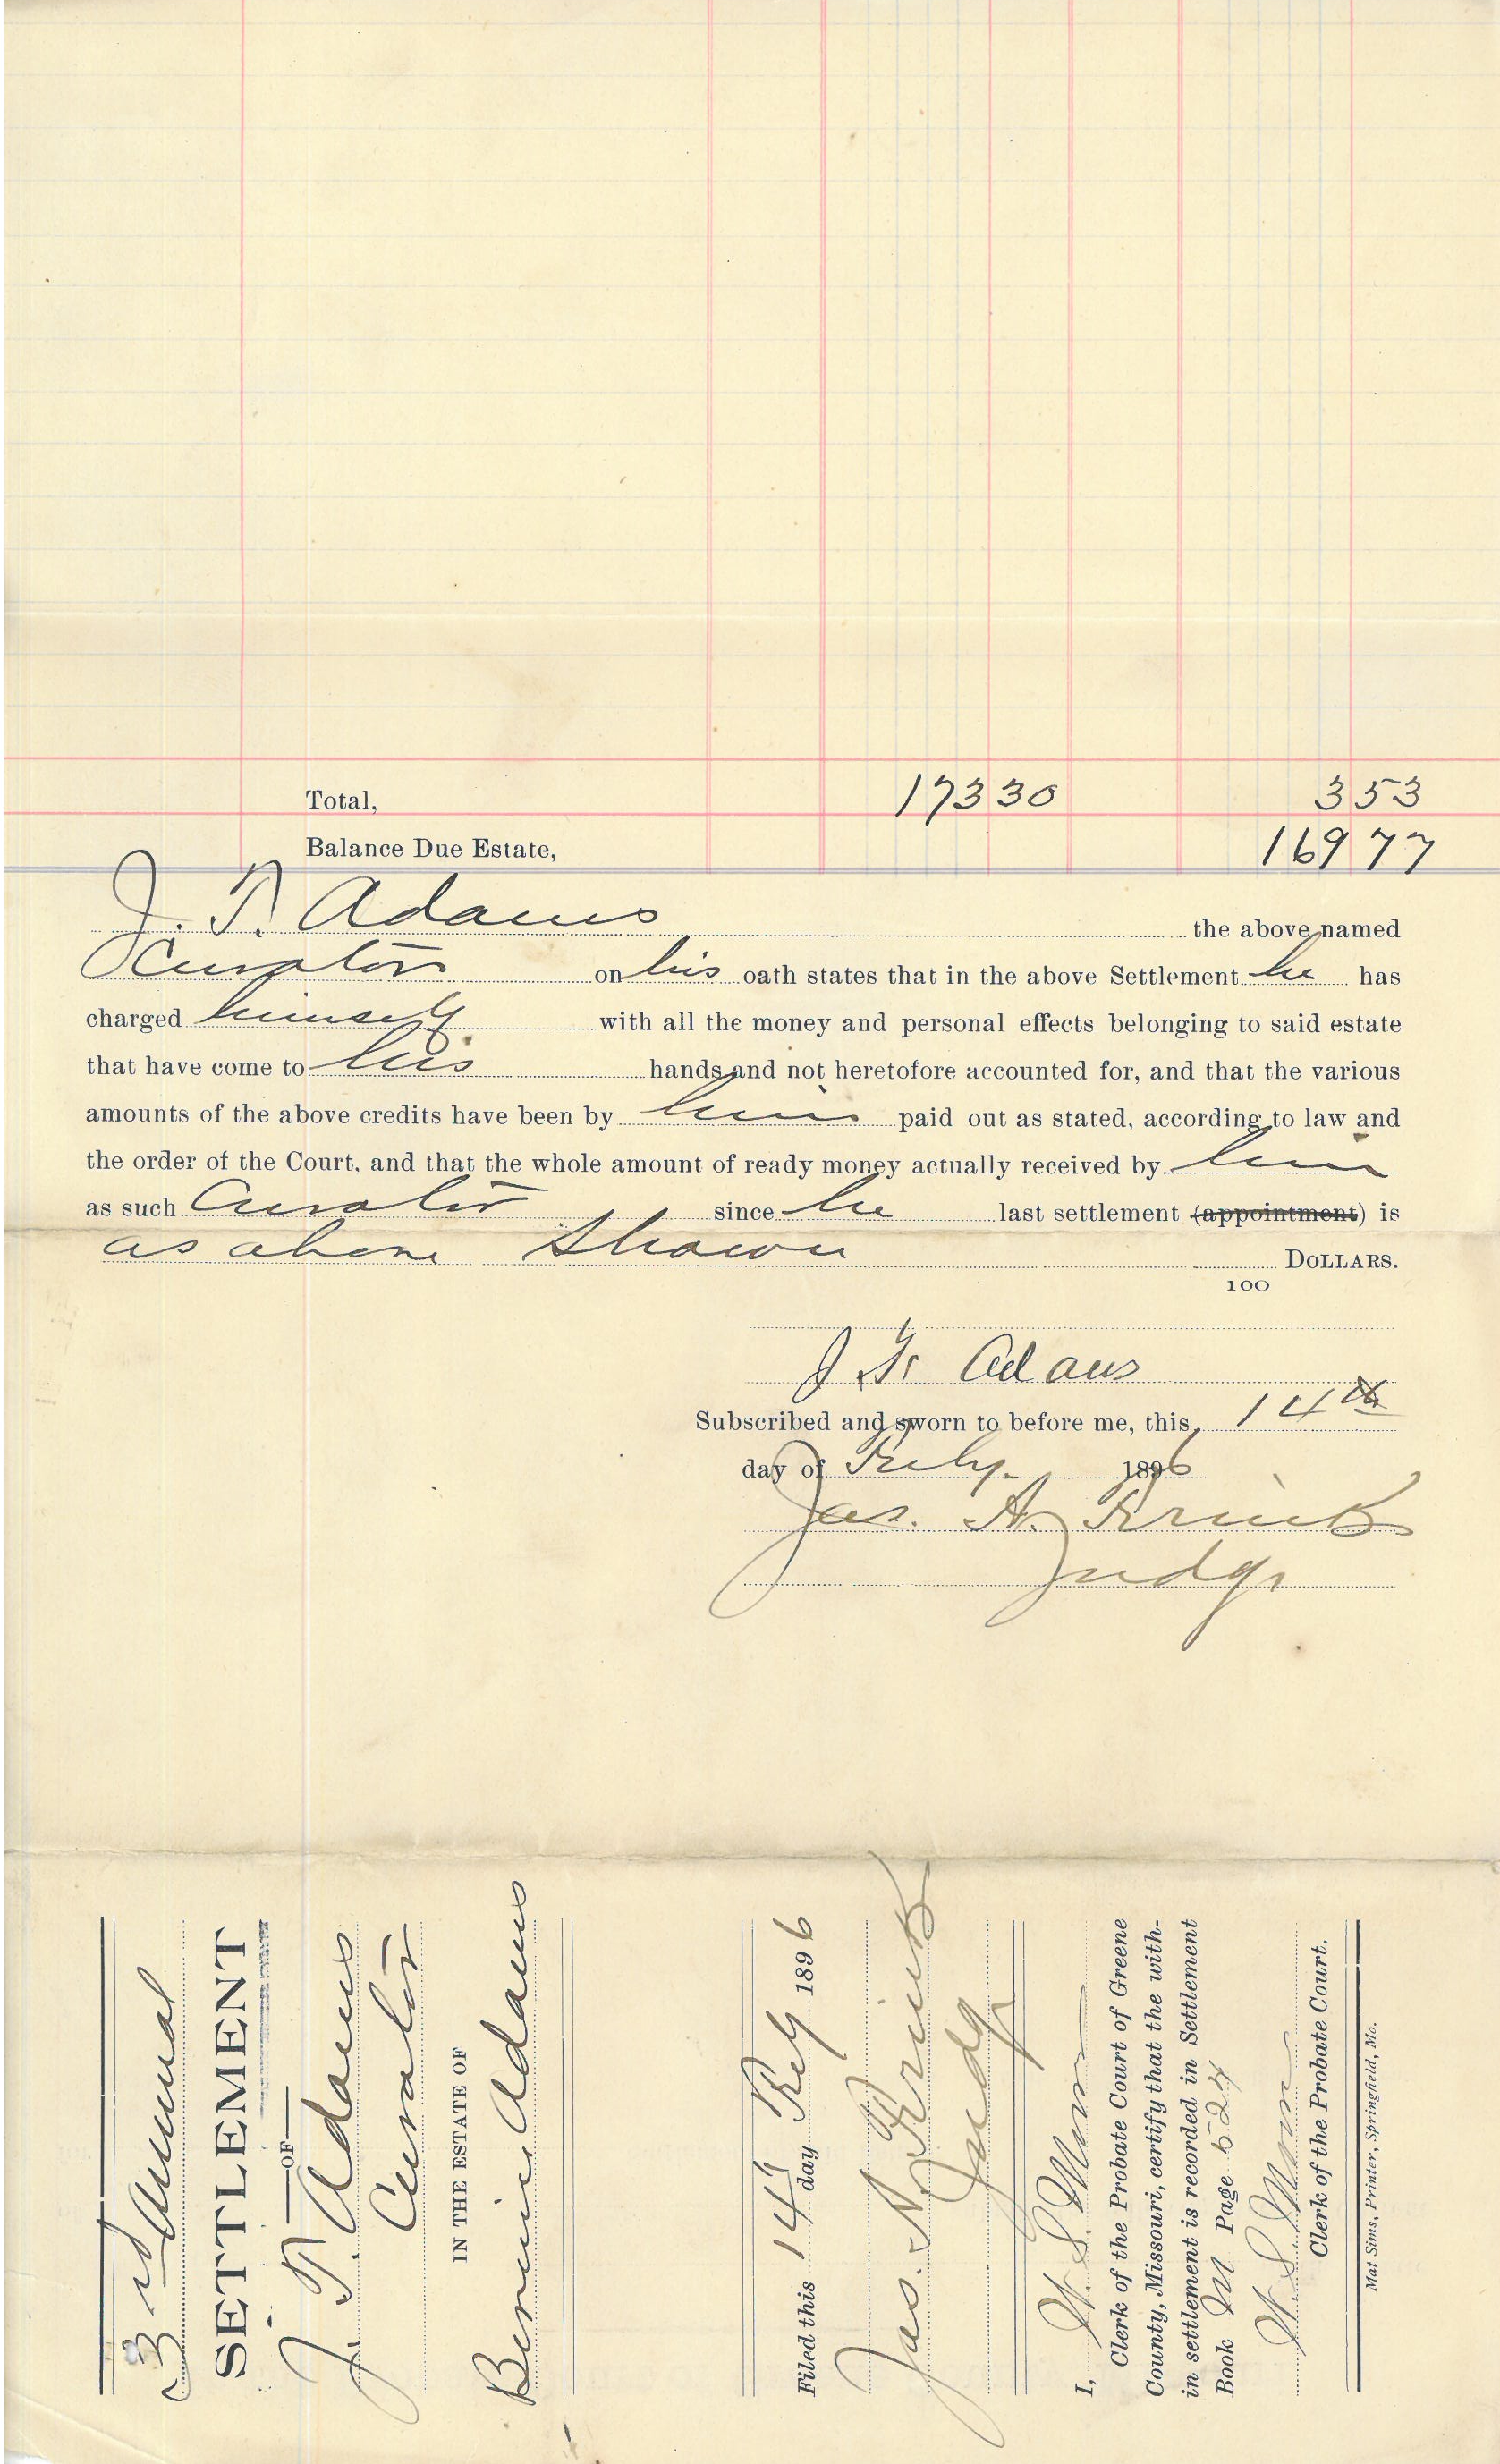 Total, 173 30 3 53
Balance Due Estate, 169 77
J. T. Adams the above named
Curator on his oath states that in the above Settlement he has
charged himself with all the money and personal effects belonging to said estate
that have come to his hands and not heretofore accounted for, and that the various
amounts of the above credits have been by him paid out as stated, according to law and
the order of the Court, and that the whole amount of ready money actually received by him
as such Curator since he last settlement (appointment) is
as above shown DOLLARS.
100
J. T. Adams
Subscribed and sworn to before me, this 14th
day of Feby. 1896
Jas. A.
Judge
3rd Annual
SETTLEMENT
OF
J. T. Adams
Curator
IN THE ESTATE OF
Adams
Filed this 14" day Feby 1896
Jas.
Judge
I, W. S. Mann
Clerk of the Probate Court of Greene
County, Missouri, certify that the with-
in settlement is recorded in Settlement
Book M Page 524
W. S. Mann
Clerk of the Probate Court.
Mat Sims, Printer, Springfield, Mo.